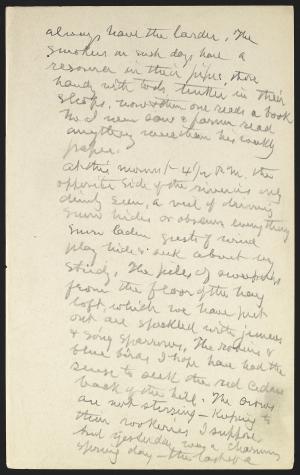 always have the larder. The
smokers on such days have a
resource in their pipes, those
handy with tools tinker in their
shops, now & then one reads a book
tho I never saw a farmer read
anything more than his weekly
paper.
At this moment - 4 1/2 P.M. the
opposite side of the river is only
dimly seen, a veil of driving
snow hides or obscures everything
snow laden gusts of wind
play hide & seek about my
study. The piles of sweepings
from the floor of the hay
loft, which we have just
out are speckled with juncos
& song sparrows. The robins &
blue birds I hope have had the
sense to seek the red cedars
back of the hill. The crows
are not stirring - keeping to
their rookeries I suppose
And yesterday was a charming
spring day - the